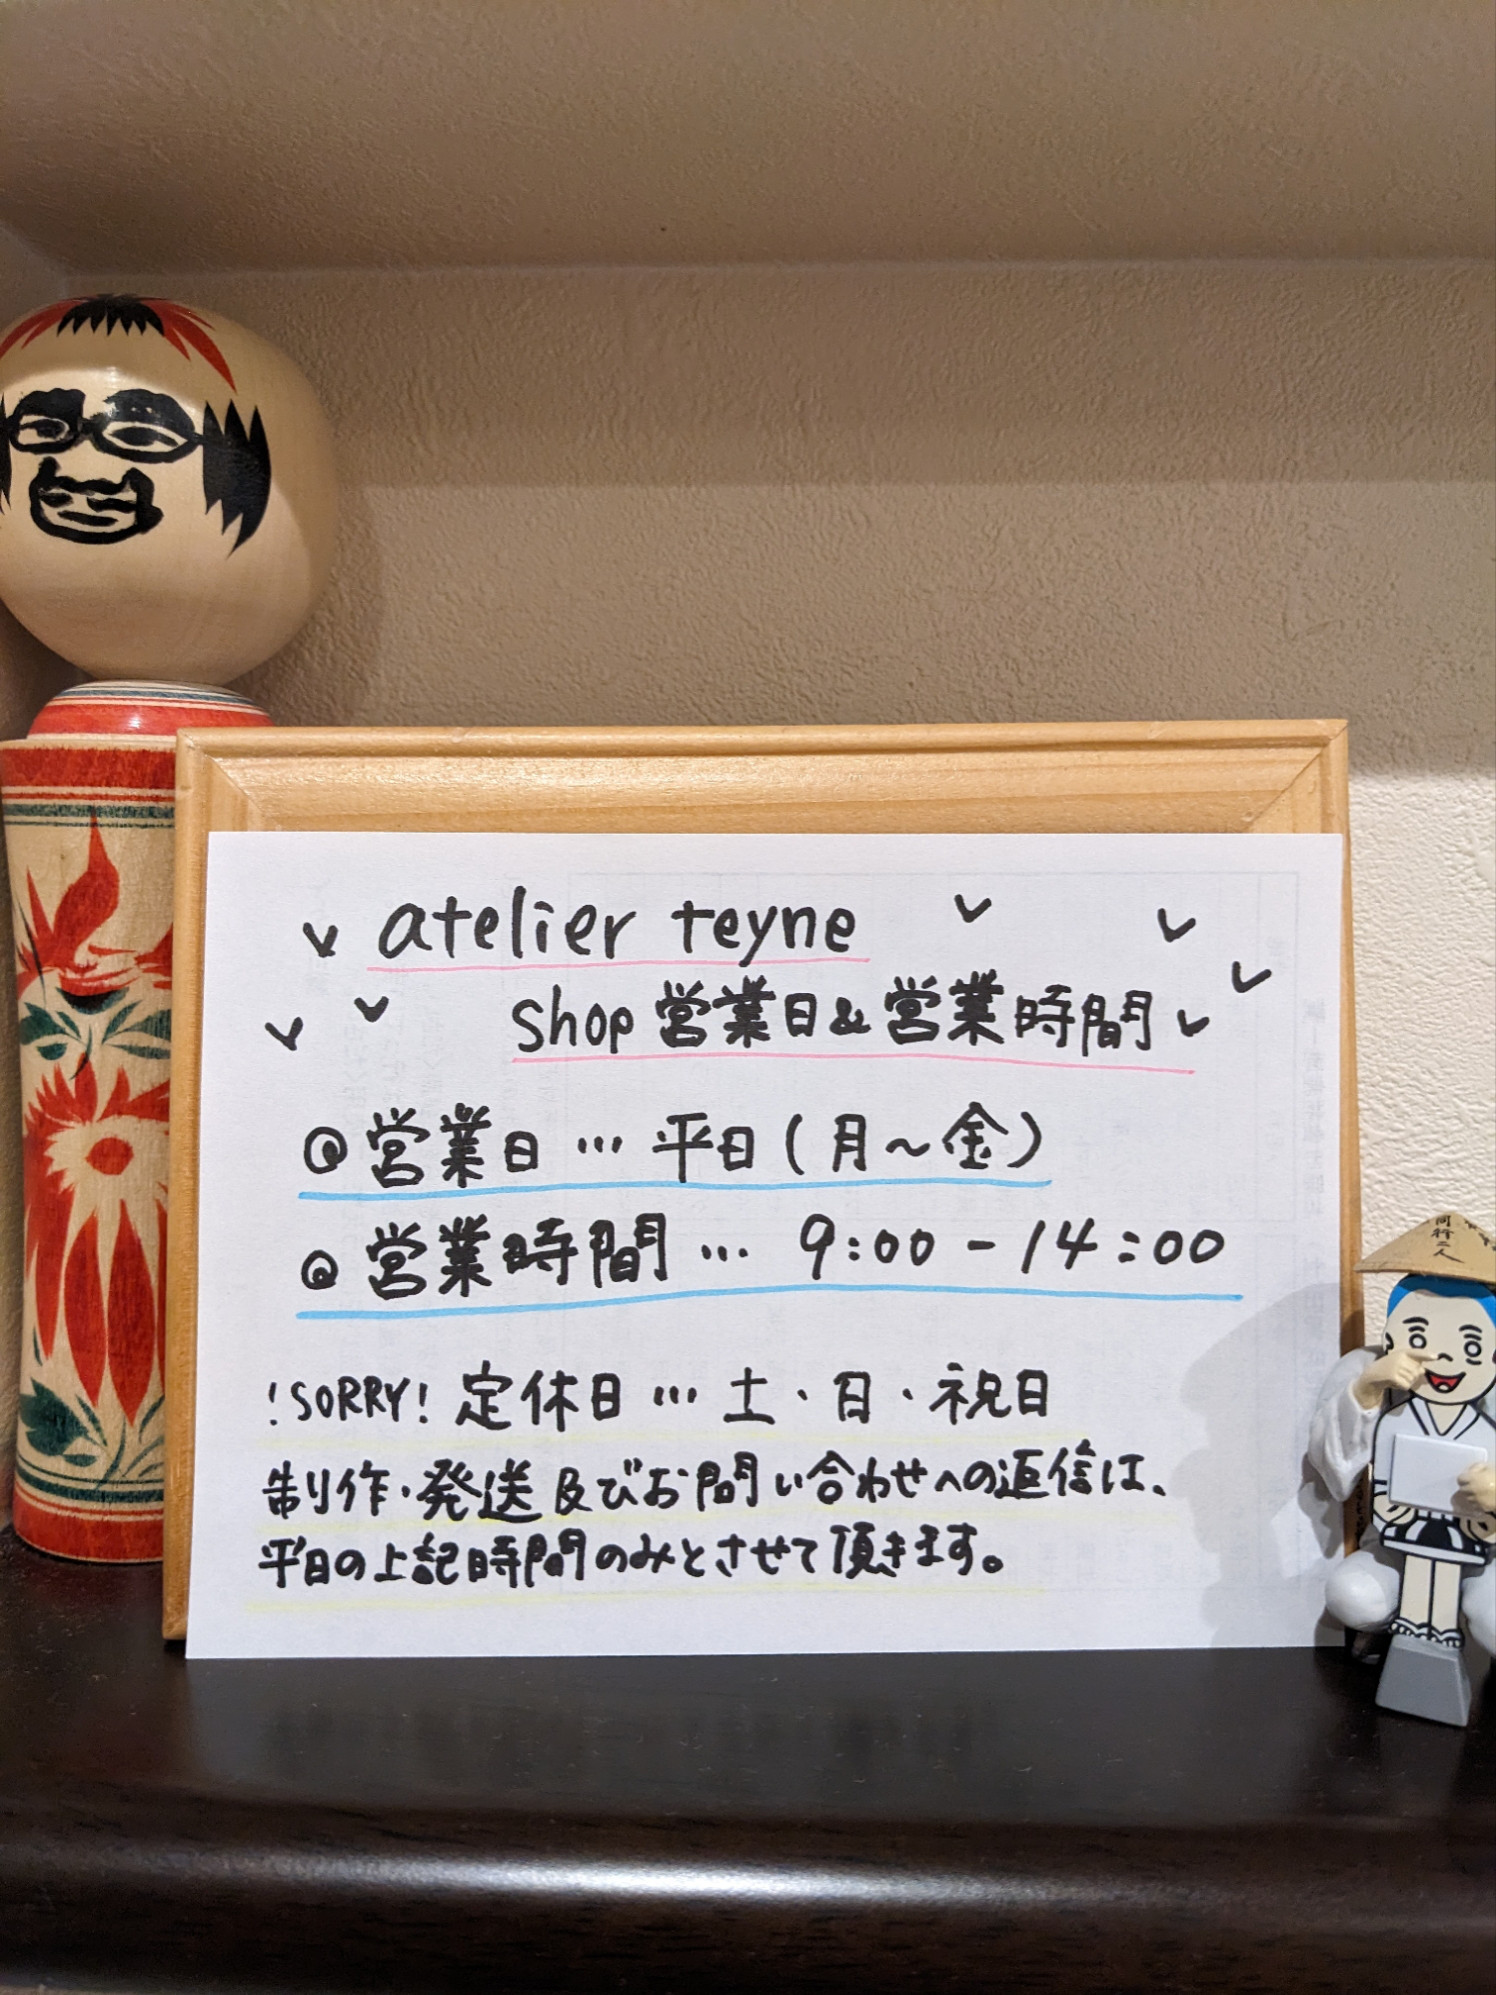 atelier teyne
shop 営業日&営業時間
@ 営業日 … 平日(月~金)
@ 営業時間 … 9:00-14:00
!SORRY! 定休日 … 土・日・祝日
制作・発送及びお問い合わせへの返信は、
平日の上記時間のみとさせて頂きます。
同行二人